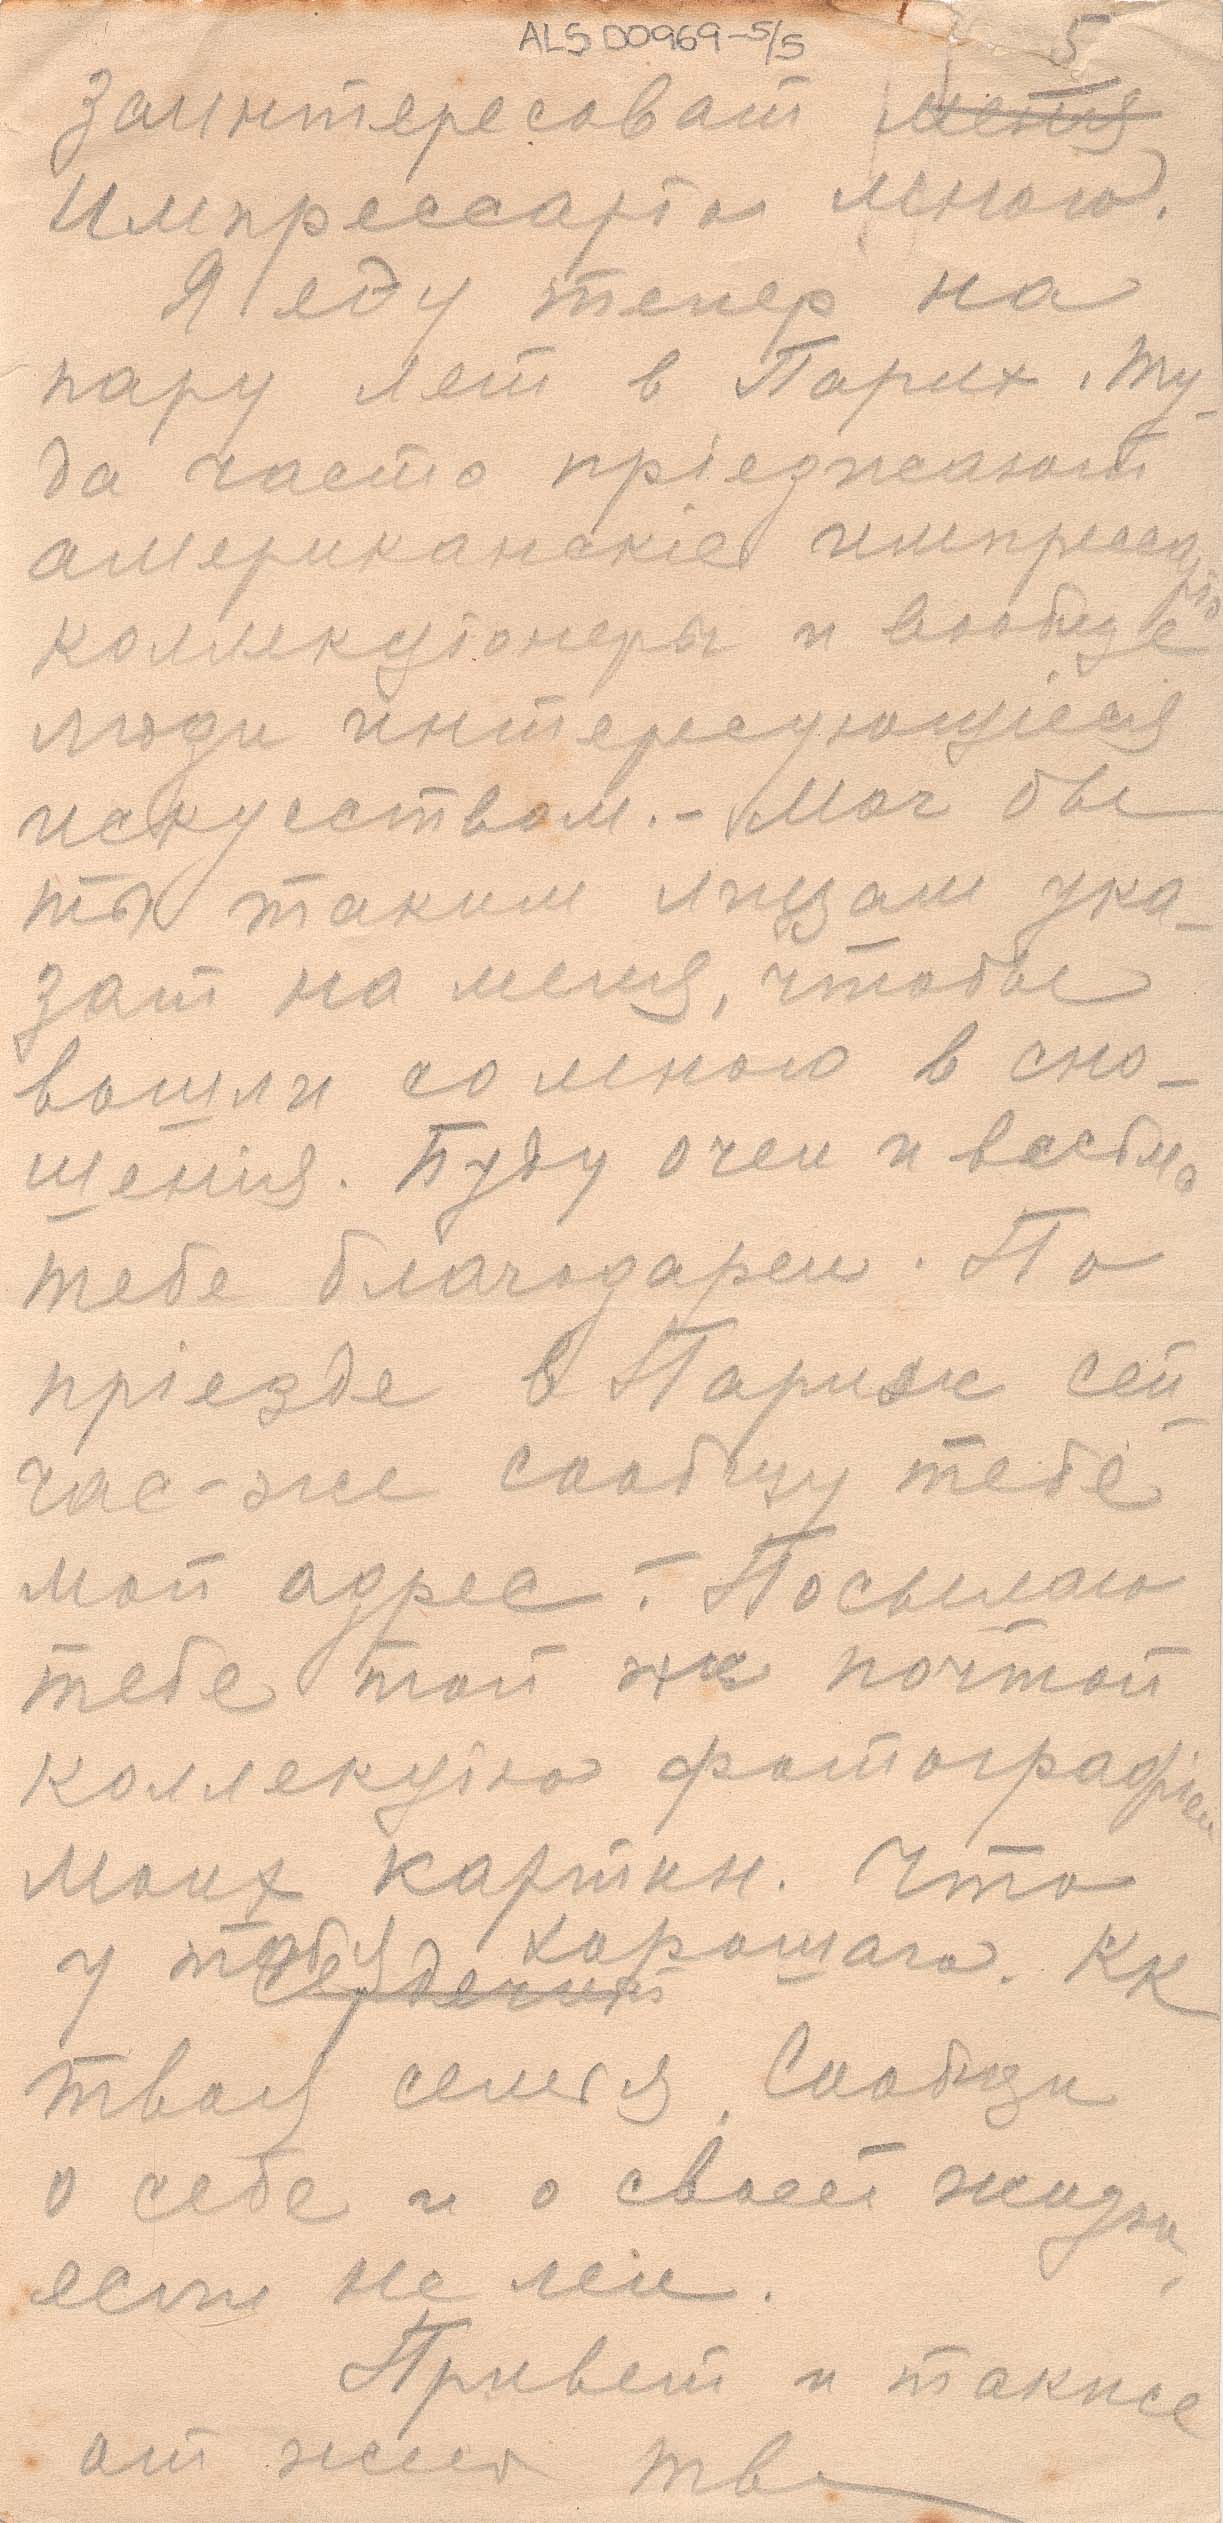 ALS 00969-5/5
5
Заинтересоват меня
Импрессаріо мною.
Я еду тепер на
пару лет в Париж. Ту-
да часто пріезжают
американскіе импрессаріо
коллекціонеры и вообще
люди интересующіеся
искусством. - Мог бы
ты таким лицам ука-
зат на меня, чтобы
вошли со мною в сно-
шенія. Буду очен и
тебе благодарен. По
пріезде в Париж сей-
час-же сообщу тебе
мой адрес. - Посылаю
тебе той же почтой
коллекцію фотографіи
моих картин. Что
у тебя хорошаго. Кк
твоя семья. Сообщи
о себе и о своей жизни,
если не лен.
Привет и также
от жены тв